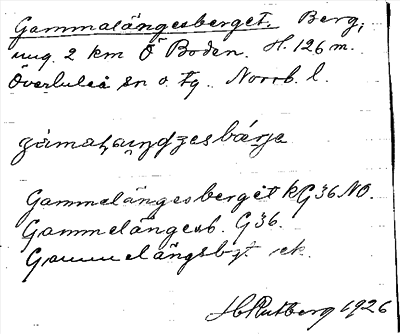 Gammalängesberget. Berg,
ung. 2 km Ö Boden. H. 126 m.
Överluleå sn o. tg. Norrb. l.
Gammelängesberget kG 36 NO.
Gammelängesb. G 36.
Gammelängsbgt ek.
H Rutberg 1926